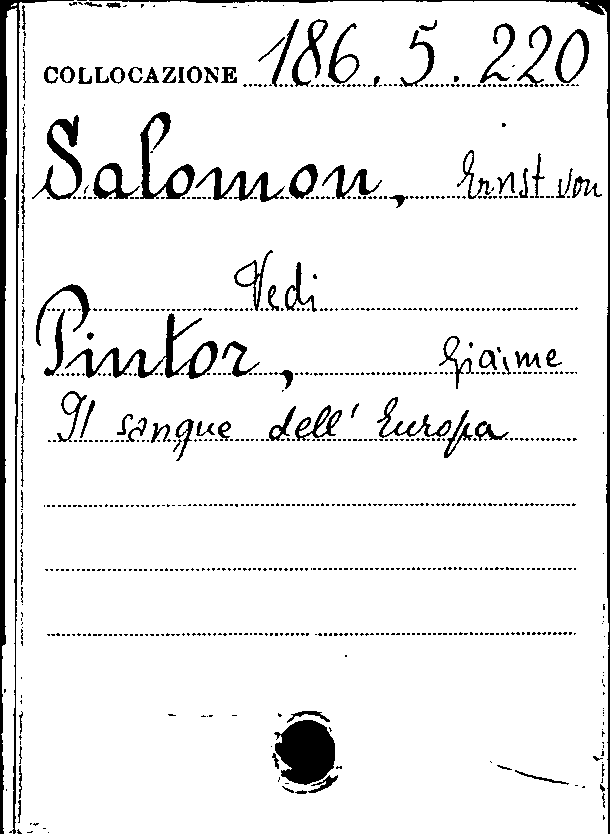 COLLOCAZIONE 186.5.220
Salomon, Ernst von
Vedi
Pintor, Giaime
Il sangue dell' Europa